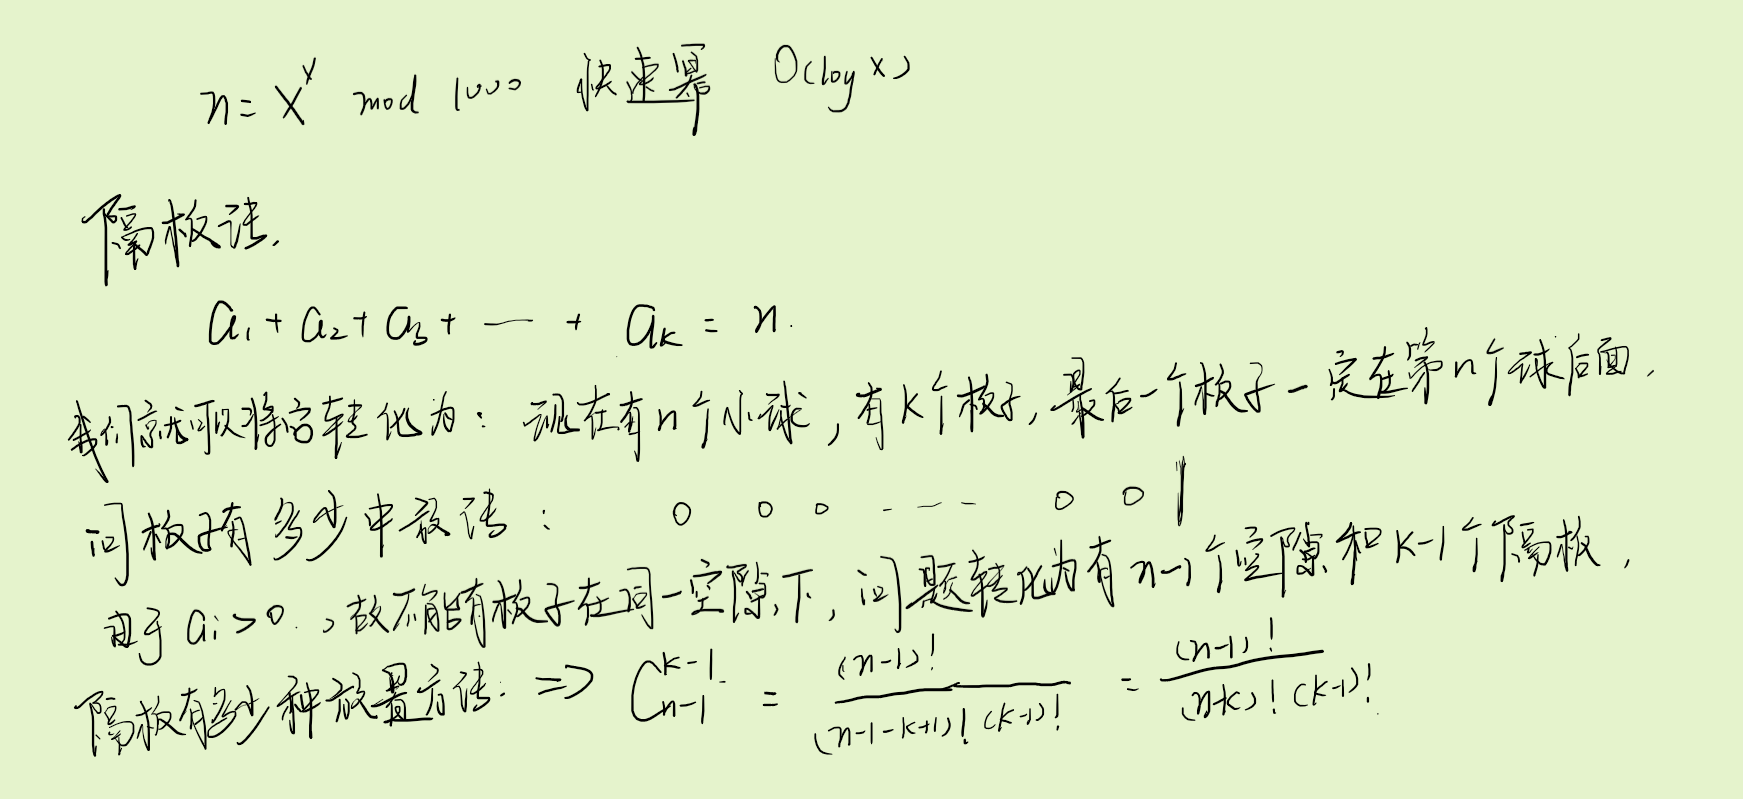 n = x^x mod 1000 快速幂 O(log x)
隔板法.
a₁ + a₂ + a₃ + — + aₖ = n.
我们就可以将它转化为: 现在有n个小球,有k个板子,最后一个板子一定在第n个球后面,
问板子有多少中放法: o o o - — - o o |
由于 aᵢ>0.,故不能有板子在同一空隙下,问题转化为有n-1个空隙和k-1个隔板,
隔板有多少种放置方法: => C_{n-1}^{k-1} = (n-1)! / (n-1-k+1)! (k-1)! = (n-1)! / (n-k)! (k-1)!